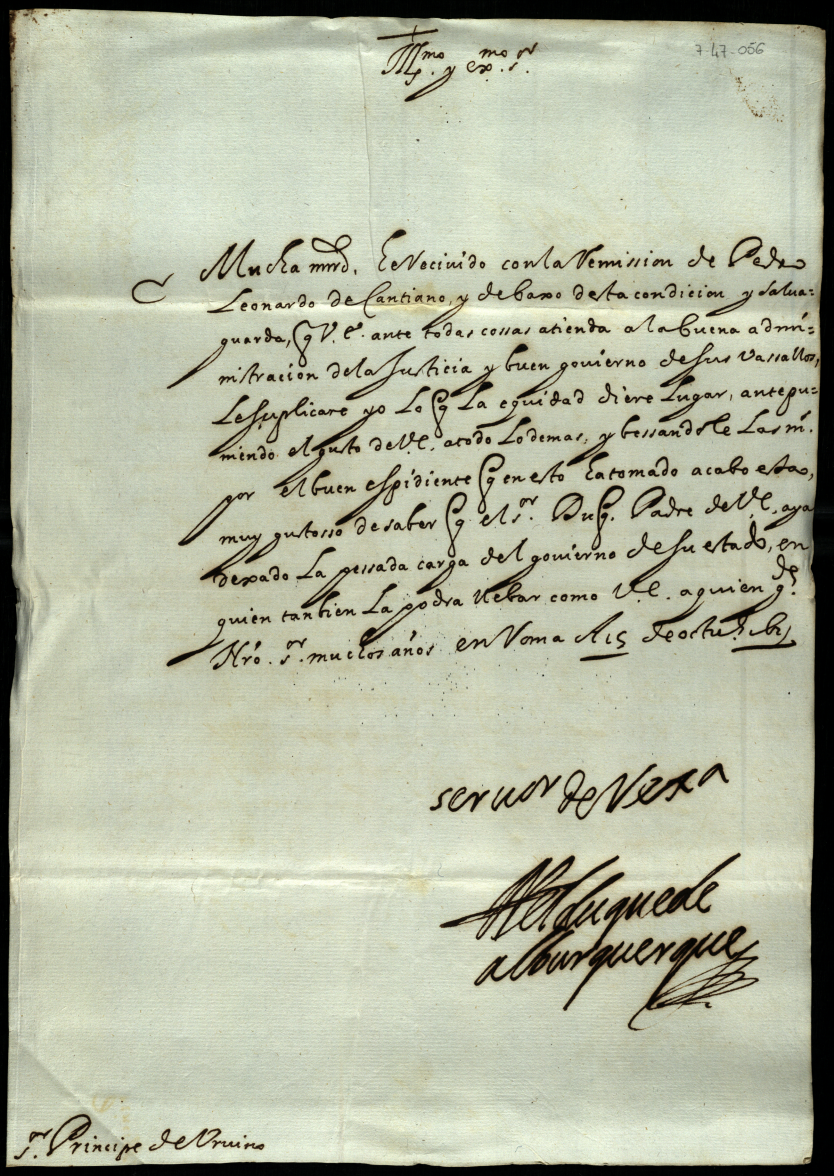 7-47-056
Illmo. y exmo. sor.
Mucha mrd. he Recivido con la Remission de Pedro
Leonardo de Cantiano, y debaxo desta condicion y salua=
guarda, q V.E. ante todas cossas atienda a la buena admi=
nistracion de la Justicia y buen govierno de sus vassallos,
Le suplicare yo Lo q La equidad diere Lugar, antepu=
niendo el gusto de V.E. a todo Lo demas, y bessandole Las m.
por el buen espidiente q en esto ha tomado acabo esta,
muy gustosso de saber q el sor. Duq. Padre de V.E. aya
dexado La pessada carga del govierno de su estado, en
quien tanbien La podra llebar como V.E. a quien gde.
Nro. sor. muchos años en Roma A 15 de octue.
seruor de Vexa
el duque de
alburquerque
sor. Principe de Vruino